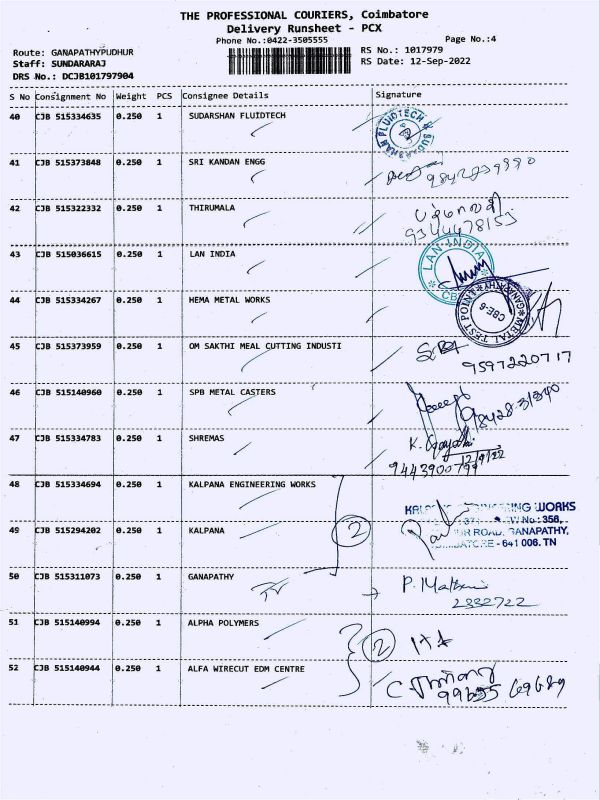 THE PROFESSIONAL COURIERS, Coimbatore
Delivery Runsheet - PCX
Phone No.:0422-3505555 Page No.:4
Route: GANAPATHYPUDHUR RS No.: 1017979
Staff: SUNDARARAJ RS Date: 12-Sep-2022
DRS No.: DCJB101797904
S No Consignment No Weight PCS Consignee Details Signature
40 CJB 515334635 0.250 1 SUDARSHAN FLUIDTECH
SUDARSHAN FLUIDTECH
41 CJB 515373848 0.250 1 SRI KANDAN ENGG
42 CJB 515322332 0.250 1 THIRUMALA
9344478153
43 CJB 515036615 0.250 1 LAN INDIA
LAN-INDIA
44 CJB 515334267 0.250 1 HEMA METAL WORKS
METAL TEST POINT
CBE-6
45 CJB 515373959 0.250 1 OM SAKTHI MEAL CUTTING INDUSTI
9597220717
46 CJB 515140960 0.250 1 SPB METAL CASTERS
47 CJB 515334783 0.250 1 SHREMAS
12/9/22
48 CJB 515334694 0.250 1 KALPANA ENGINEERING WORKS
49 CJB 515294202 0.250 1 KALPANA
2
No.: 356,
ROAD, GANAPATHY,
641 006. TN
50 CJB 515311073 0.250 1 GANAPATHY
2332722
51 CJB 515140994 0.250 1 ALPHA POLYMERS
2
52 CJB 515140944 0.250 1 ALFA WIRECUT EDM CENTRE